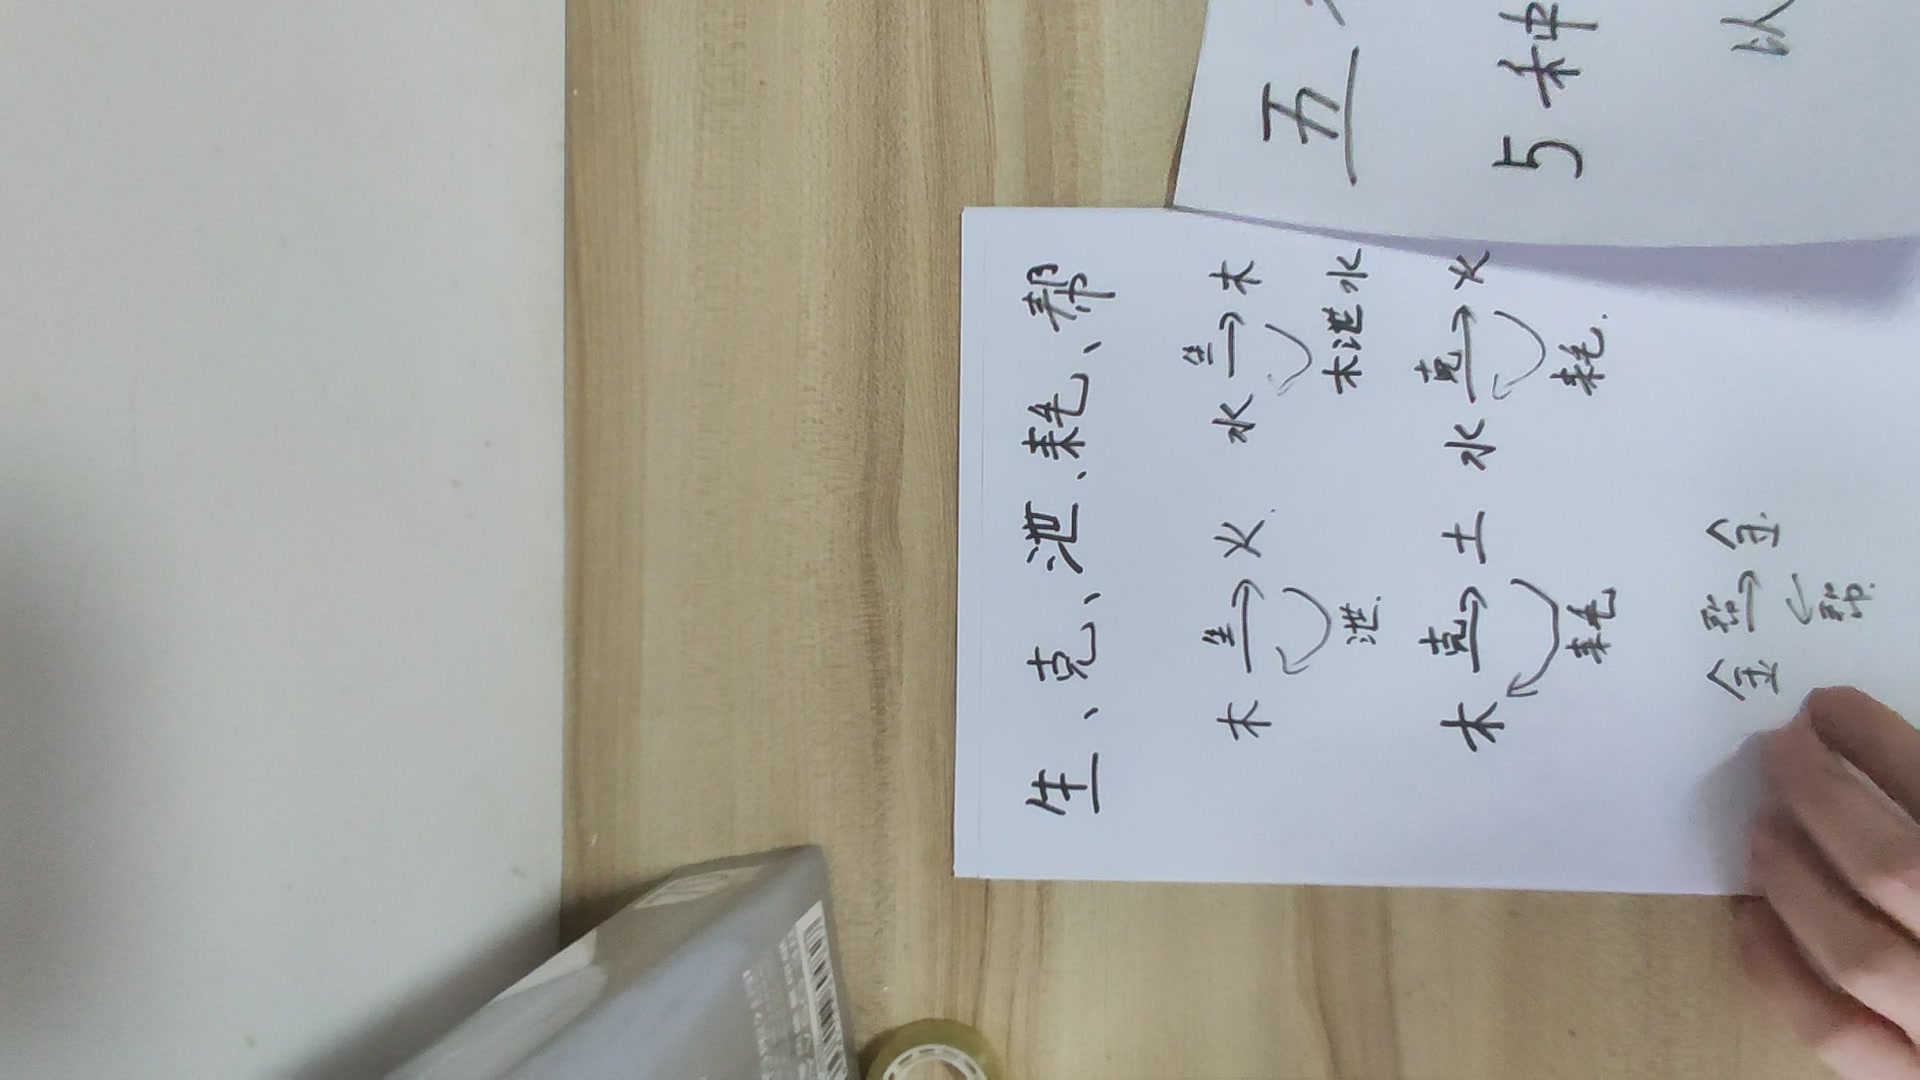 生、克、泄、耗、帮
生 生
木 → 火 水 → 木
泄 木泄水
克 克
木 → 土 水 → 火
耗 耗
帮
金 → 金
帮
五
5种
以